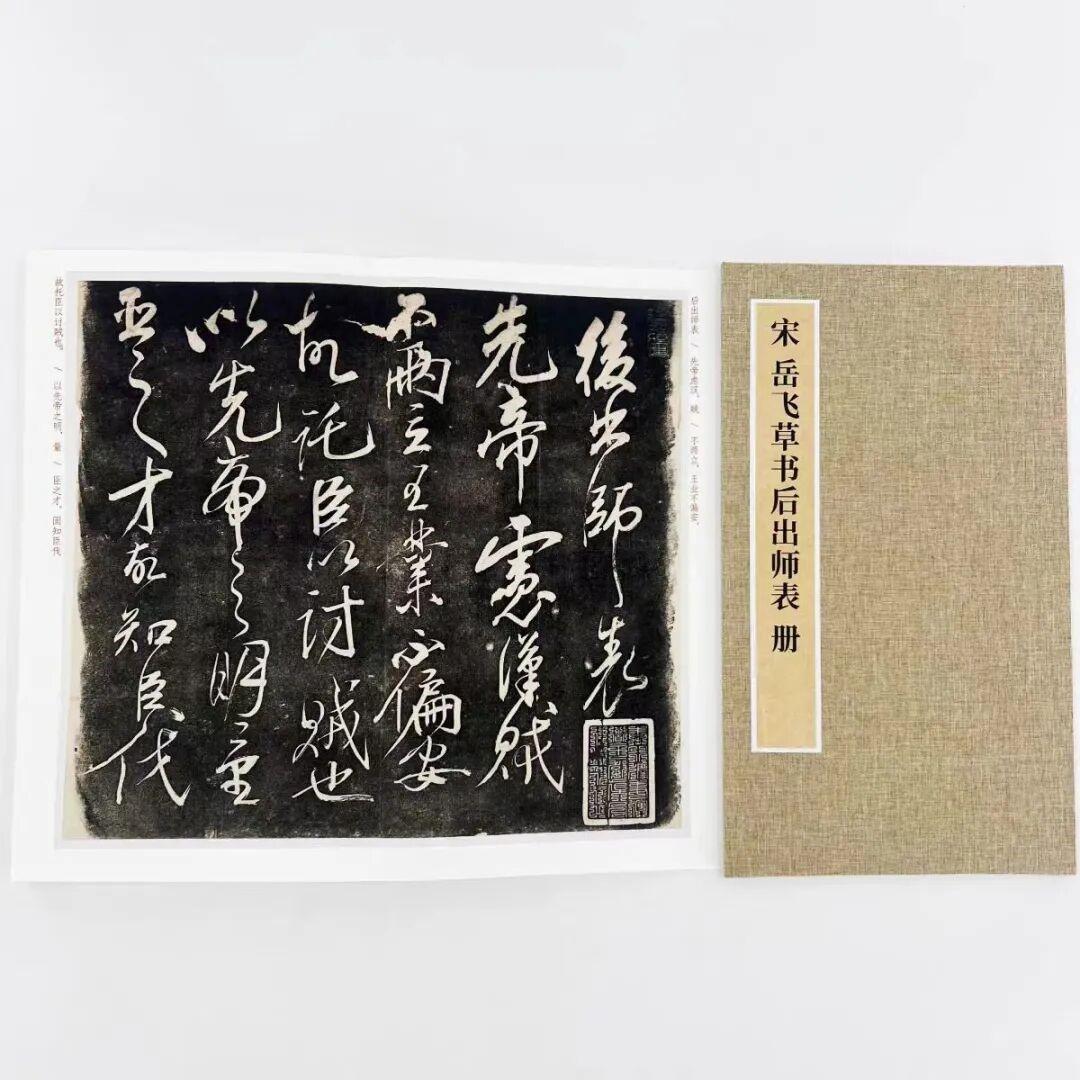 宋 岳飞草书后出师表 册
后出师表 / 先帝虑汉、贼 / 不两立，王业不偏安，
後出師表
先帝慮漢賊
不兩立王業不偏安
故託臣以討賊也
以先帝之明量
臣之才故知臣伐
故托臣以讨贼也。 / 以先帝之明，量 / 臣之才，固知臣伐